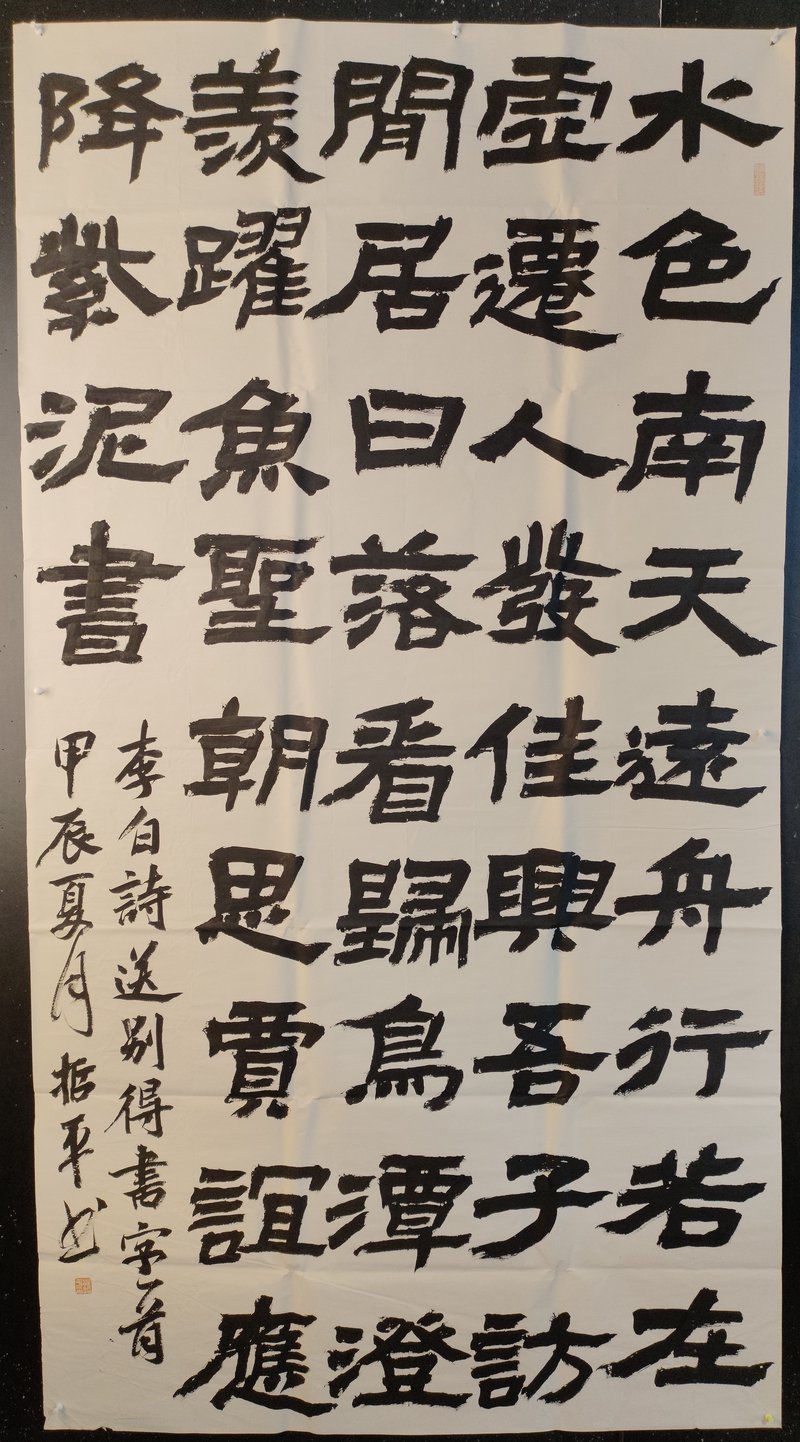 水色南天遠舟行若在
虛遷人發佳興吾子訪
閒居日落看歸鳥潭澄
羨躍魚聖朝思賈誼應
降紫泥書
李白詩送別得書字一首
甲辰夏月哲平書